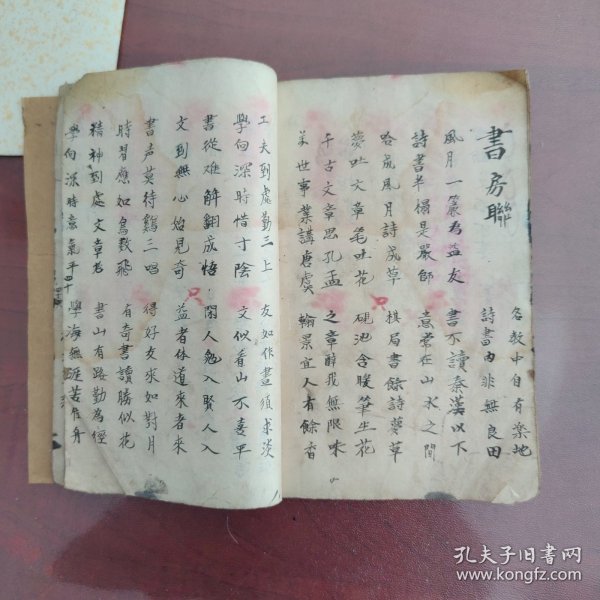 書房聯
名教中自有樂地
詩書內非無良田
風月一簾為益友
詩書半榻是嚴師
哈成風月詩成草
夢吐文章笔吐花
千古文章思孔孟
世事業講唐虞
書不讀秦漢以下
意常在山水之間
棋局書餘詩夢草
硯池含暖筆生花
之章醉我無限味
翰景宜人有餘香
工夫到處勤三上
學向深時惜寸陰
書從难解翻成悟
文到無心始見奇
書声莫待鷄三唱
時習應如鳥数飛
精神到處文章老
學向深時意氣平
四十
友如作畫須求淡
文似看山不喜平
閑人勉入賢人入
益者体道來者來
得好友來如對月
有奇書讀勝似花
書山有路勤為徑
學海無涯苦作舟
孔夫子旧書网
www.kongfz.com